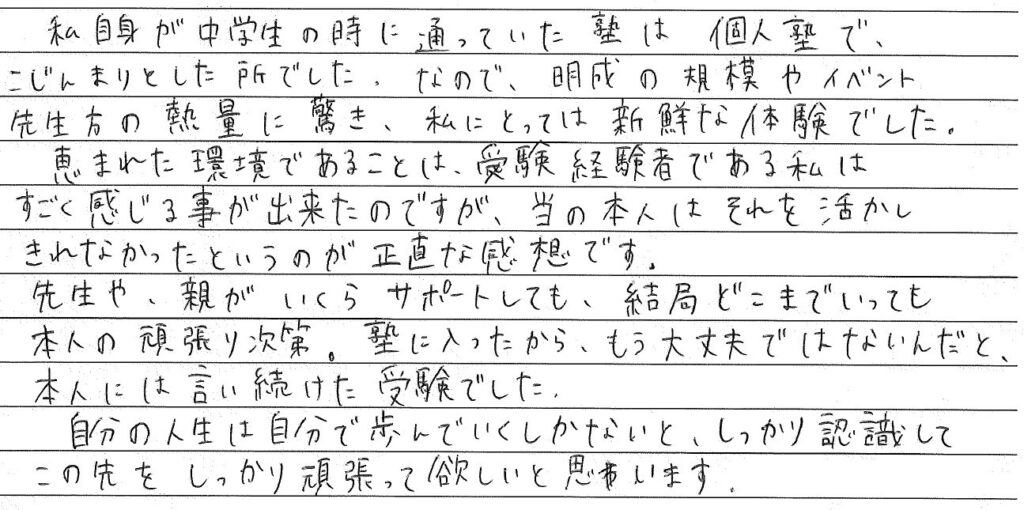 私自身が中学生の時に通っていた塾は 個人塾で、
こじんまりとした所でした。なので、明成の規模やイベント
先生方の熱量に驚き、私にとっては新鮮な体験でした。
恵まれた環境であることは、受験経験者である私は
すごく感じる事が出来たのですが、当の本人はそれを活かし
きれなかったというのが正直な感想です。
先生や、親がいくらサポートしても、結局どこまでいっても
本人の頑張り次第。塾に入ったから、もう大丈夫ではないんだと、
本人には言い続けた受験でした。
自分の人生は自分で歩んでいくしかないと、しっかり認識して
この先をしっかり頑張って欲しいと思います。